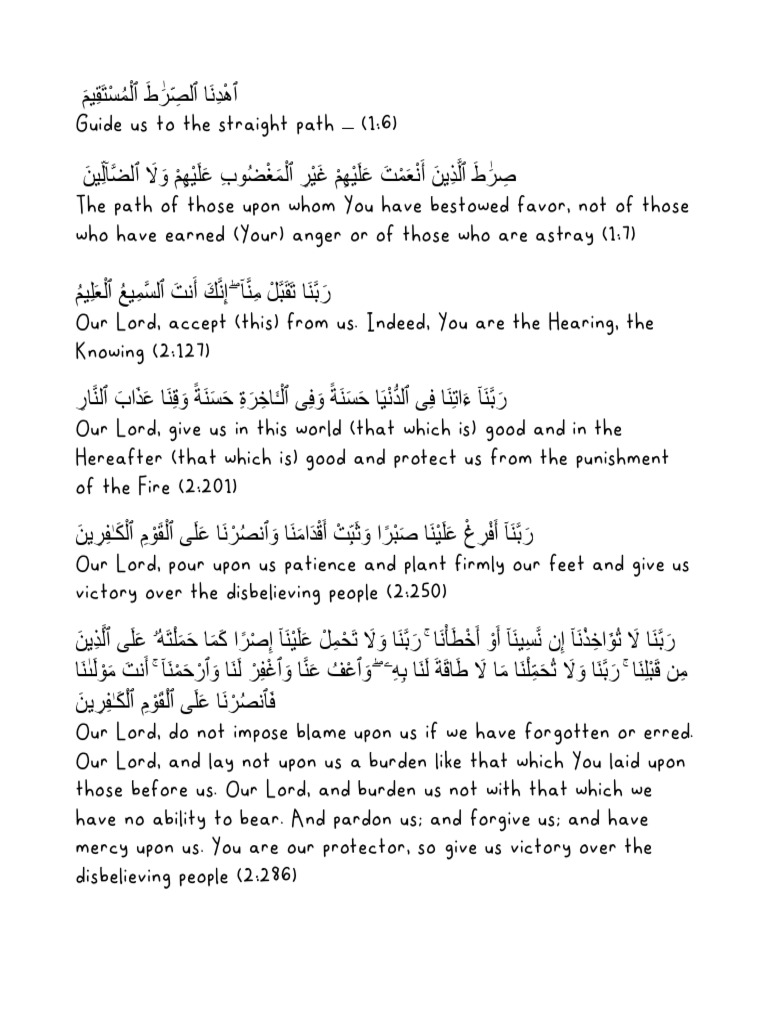 ٱهْدِنَا ٱلصِّرَٰطَ ٱلْمُسْتَقِيمَ
Guide us to the straight path – (1:6)
صِرَٰطَ ٱلَّذِينَ أَنْعَمْتَ عَلَيْهِمْ غَيْرِ ٱلْمَغْضُوبِ عَلَيْهِمْ وَلَا ٱلضَّآلِّينَ
The path of those upon whom You have bestowed favor, not of those
who have earned (Your) anger or of those who are astray (1:7)
رَبَّنَا تَقَبَّلْ مِنَّآ ۖ إِنَّكَ أَنتَ ٱلسَّمِيعُ ٱلْعَلِيمُ
Our Lord, accept (this) from us. Indeed, You are the Hearing, the
Knowing (2:127)
رَبَّنَآ ءَاتِنَا فِى ٱلدُّنْيَا حَسَنَةً وَفِى ٱلْـَٔاخِرَةِ حَسَنَةً وَقِنَا عَذَابَ ٱلنَّارِ
Our Lord, give us in this world (that which is) good and in the
Hereafter (that which is) good and protect us from the punishment
of the Fire (2:201)
رَبَّنَآ أَفْرِغْ عَلَيْنَا صَبْرًا وَثَبِّتْ أَقْدَامَنَا وَٱنصُرْنَا عَلَى ٱلْقَوْمِ ٱلْكَـٰفِرِينَ
Our Lord, pour upon us patience and plant firmly our feet and give us
victory over the disbelieving people (2:250)
رَبَّنَا لَا تُؤَاخِذْنَآ إِن نَّسِينَآ أَوْ أَخْطَأْنَا ۚ رَبَّنَا وَلَا تَحْمِلْ عَلَيْنَآ إِصْرًا كَمَا حَمَلْتَهُۥ عَلَى ٱلَّذِينَ
مِن قَبْلِنَا ۚ رَبَّنَا وَلَا تُحَمِّلْنَا مَا لَا طَاقَةَ لَنَا بِهِۦ ۖ وَٱعْفُ عَنَّا وَٱغْفِرْ لَنَا وَٱرْحَمْنَآ ۚ أَنتَ مَوْلَىٰنَا
فَٱنصُرْنَا عَلَى ٱلْقَوْمِ ٱلْكَـٰفِرِينَ
Our Lord, do not impose blame upon us if we have forgotten or erred.
Our Lord, and lay not upon us a burden like that which You laid upon
those before us. Our Lord, and burden us not with that which we
have no ability to bear. And pardon us; and forgive us; and have
mercy upon us. You are our protector, so give us victory over the
disbelieving people (2:286)